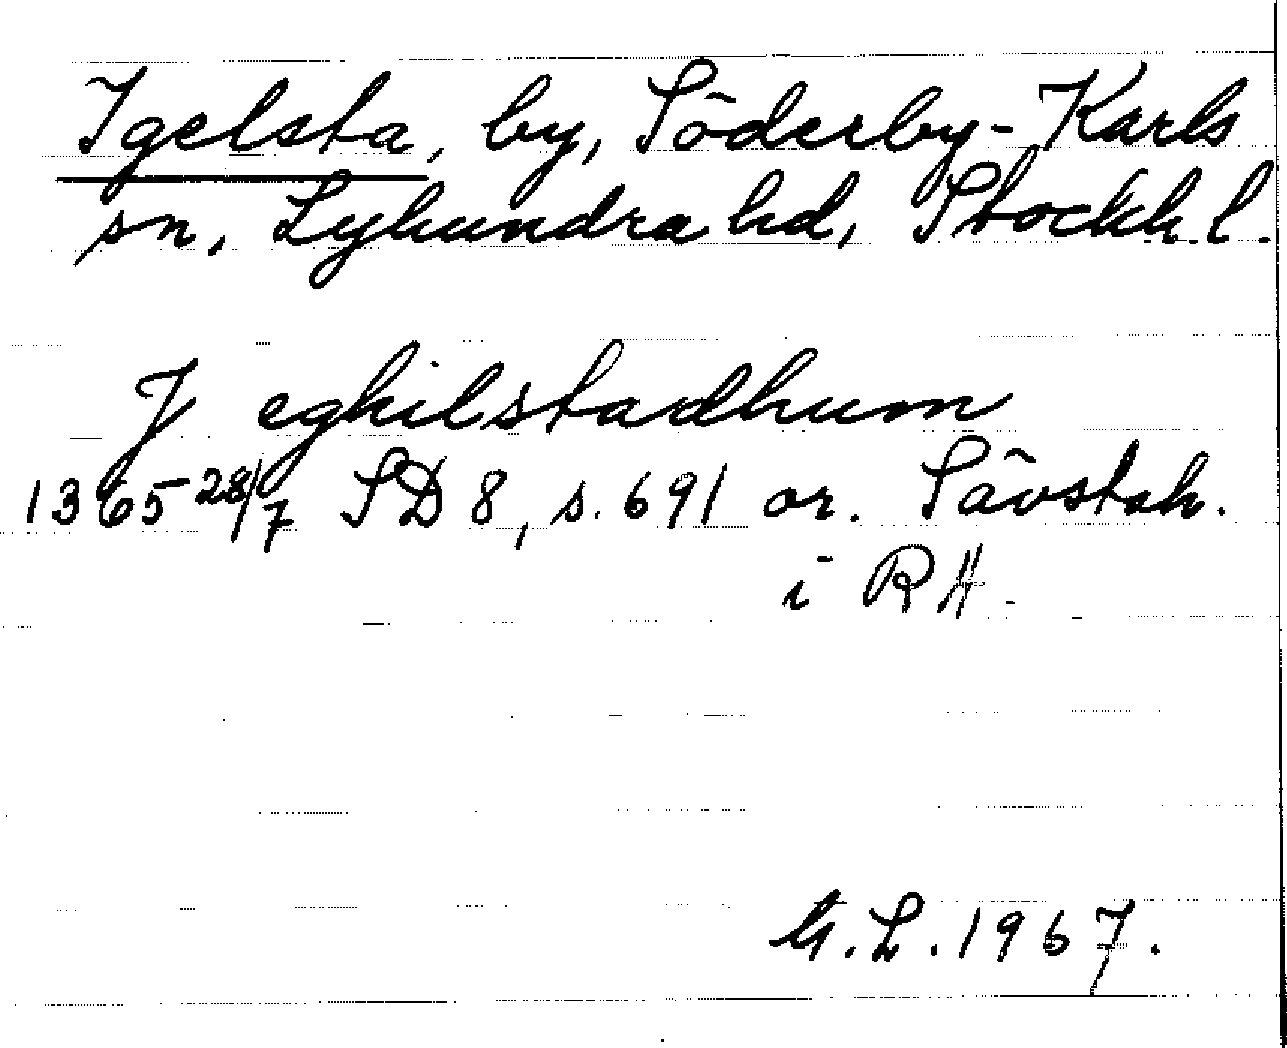 Igelsta, by, Söderby-Karls
sn, Lyhundra hd, Stockh. l.
J eghilstadhum
1365 28/7 SD 8, s. 691 or. Sävstah.
i RA.
G. L. 1967.